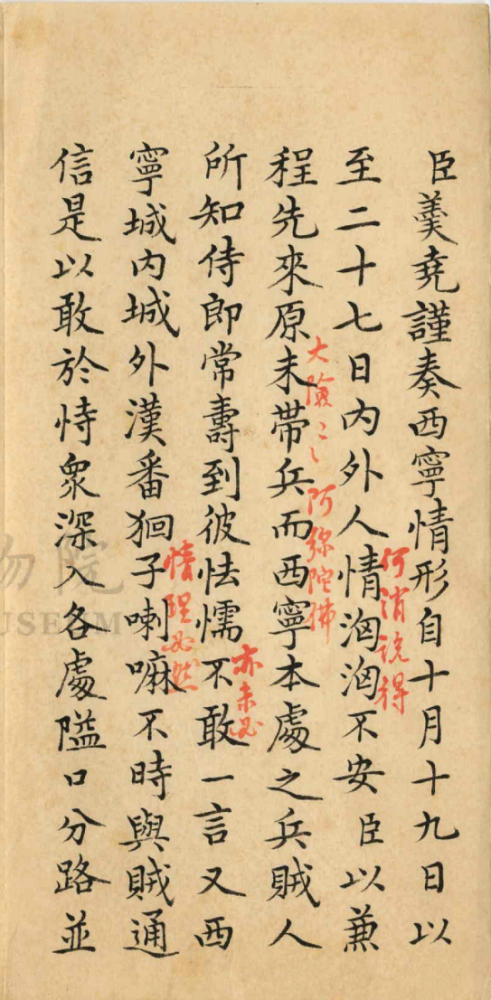 臣羹堯謹奏西寧情形自十月十九日以
何消說得
至二十七日內外人情洶洶不安臣以兼
大險〻〻阿彌陀佛
程先來原未帶兵而西寧本處之兵賊人
亦未必
所知侍郎常壽到彼怯懦不敢一言又西
情理必然
寧城內城外漢番狪子喇嘛不時與賊通
信是以敢於恃眾深入各處隘口分路並
物院
USEUM